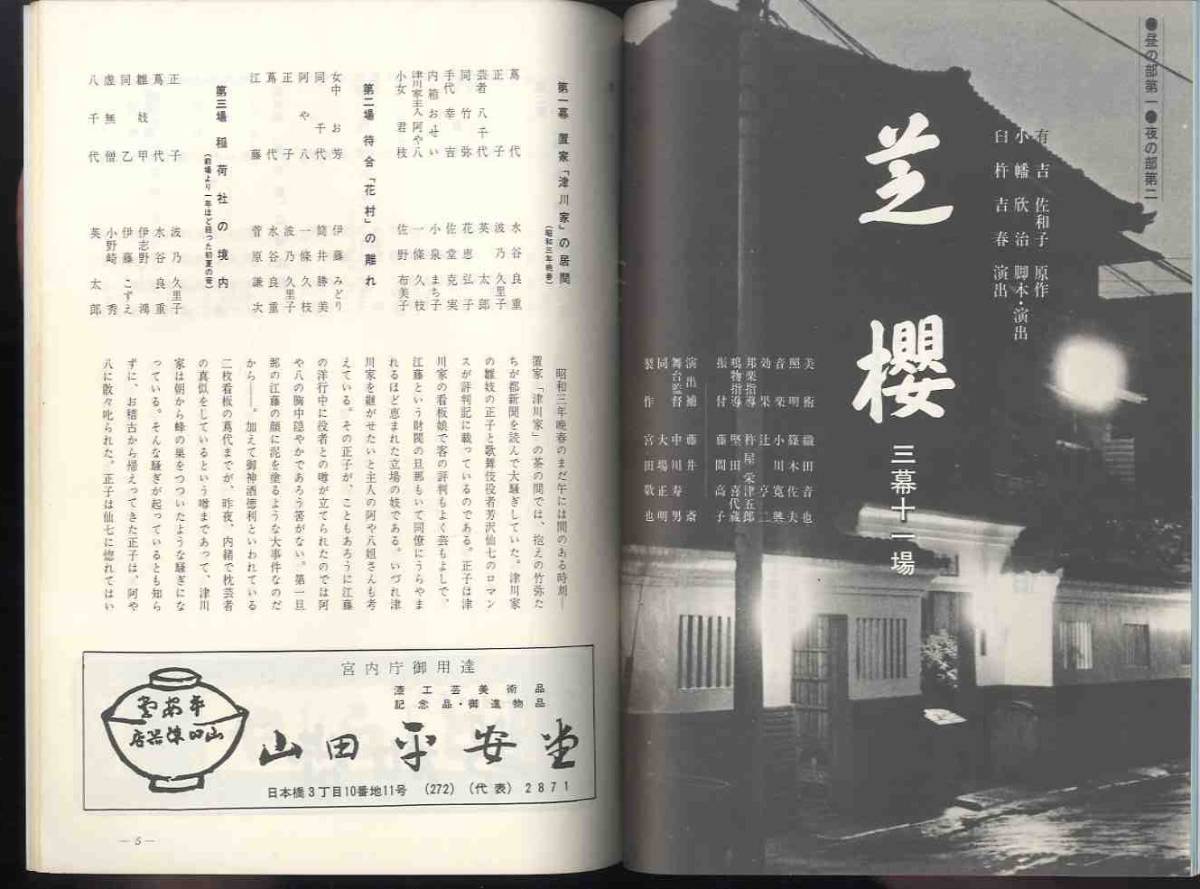 ●昼の部第一●夜の部第二
有吉佐和子 原作
小幡欣治 脚本・演出
臼杵吉春 演出
芝櫻
三幕十一場
美術 織田音也
照明 篠木佐夫
音楽 小川寛興
効果 辻亨二
邦楽指導 杵屋栄津五郎
鳴物指導 堅田喜代蔵
振付 藤間高子
演出補 藤井斎
舞台監督 中川寿男
同 大場正明
製作 宮田敬也
第一幕 置家「津川家」の居間
(昭和三年晩春)
蔦代 水谷良重
正子 波乃久里子
芸者八千代 英太郎
同 竹弥 花恵弘子
手代幸吉 佐堂克実
内箱おせい 小泉まち子
津川家主人阿や八 一條久枝
小女君枝 佐野布美子
第二場 待合「花村」の離れ
女中お芳 伊藤みどり
同 千代 筒井勝美
阿や八 一條久枝
正子 波乃久里子
蔦代 水谷良重
江藤 菅原謙次
第三場 稲荷社の境内
(前場より一年ほど経った初夏の宵)
正子 波乃久里子
蔦代 水谷良重
雛妓甲 伊志野鴻
同 乙 伊藤こずえ
虚無僧 小野崎秀
八千代 英太郎
昭和三年晩春のまだ午には間のある時刻―
置家「津川家」の茶の間では、抱えの竹弥た
ちが都新聞を読んで大騒ぎしていた。津川家
の雛妓の正子と歌舞伎役者芳沢仙七のロマン
スが評判記に載っているのである。正子は津
川家の看板娘で客の評判もよく芸もよしで、
江藤という財閥の旦那もいて同僚にうらやま
れるほど恵まれた立場の妓である。いづれ津
川家を継がせたいと主人の阿や八姐さんも考
えている。その正子が、こともあろうに江藤
の洋行中に役者との噂が立てられたのでは阿
や八の胸中穏やかであろう筈がない。第一旦
那の江藤の顔に泥を塗るような大事件なのだ
から――。加えて御神酒徳利といわれている
二枚看板の蔦代までが、昨夜、内緒で枕芸者
の真似をしているという噂まであって、津川
家は朝から蜂の巣をつついたような騒ぎにな
っている。そんな騒ぎが起っているとも知ら
ずに、お稽古から帰えってきた正子は、阿や
八に散々叱られた。正子は仙七に惚れてはい
宮内庁御用達
漆工芸美術品
記念品・御進物品
平安堂
山田漆器店
山田平安堂
日本橋3丁目10番地11号 (272) (代表) 2871
― 5 ―